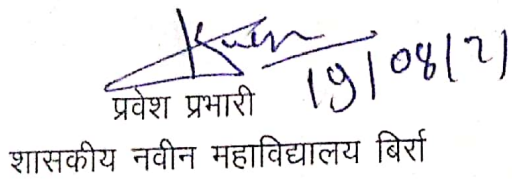 19/08/21
प्रवेश प्रभारी
शासकीय नवीन महाविद्यालय बिर्रा